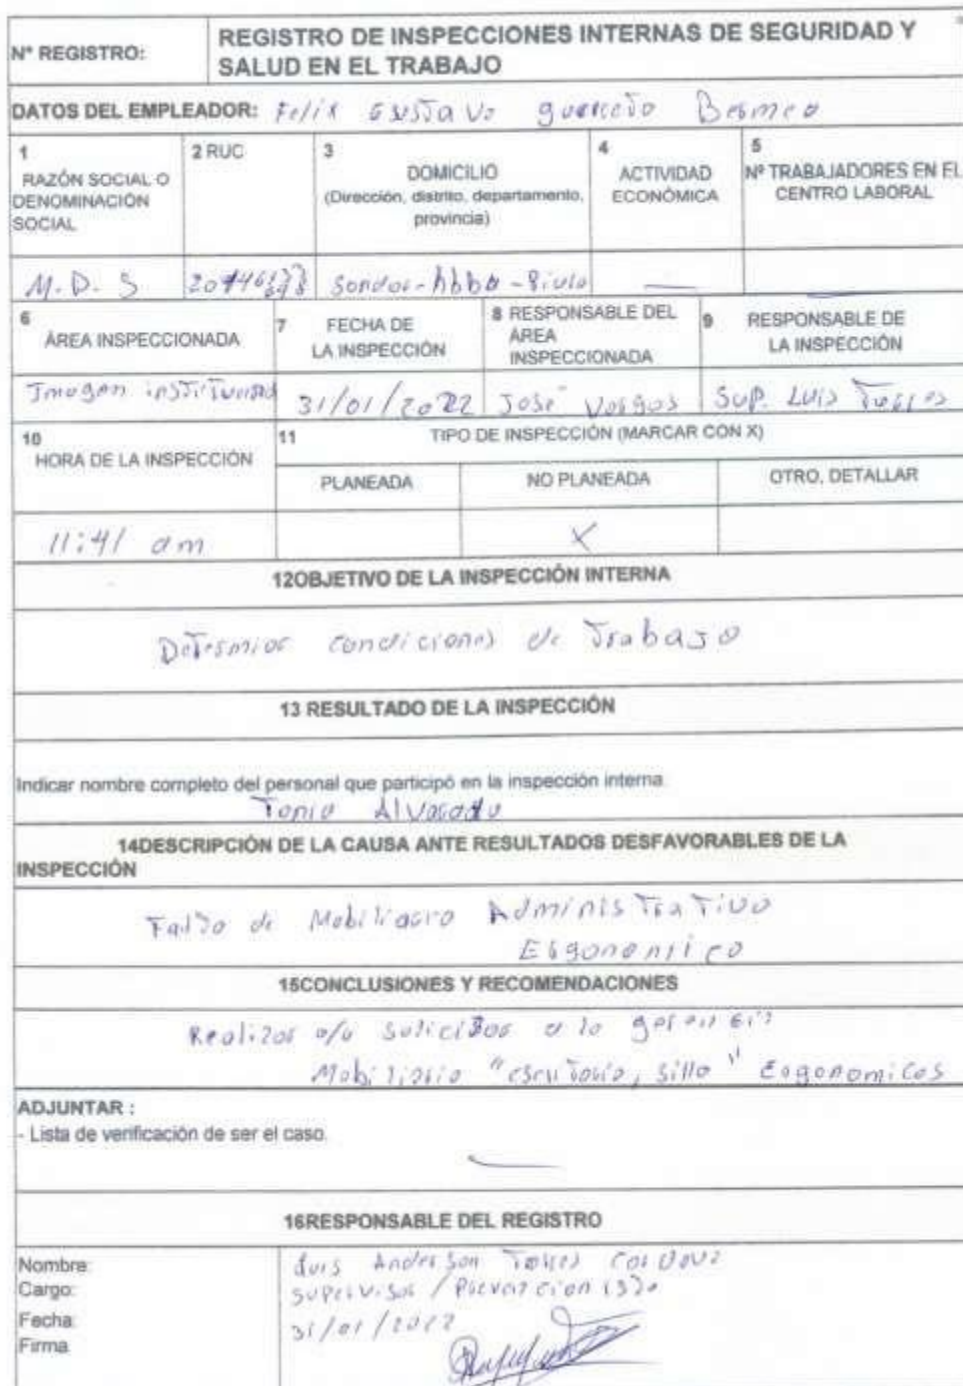 N° REGISTRO:
REGISTRO DE INSPECCIONES INTERNAS DE SEGURIDAD Y
SALUD EN EL TRABAJO
DATOS DEL EMPLEADOR: Felix Gustavo guerrero Bermeo
1
RAZÓN SOCIAL O
DENOMINACIÓN
SOCIAL
2 RUC
3
DOMICILIO
(Dirección, distrito, departamento,
provincia)
4
ACTIVIDAD
ECONÓMICA
5
Nº TRABAJADORES EN EL
CENTRO LABORAL
M.D.S
Sondor-hbba-Piula
6
ÁREA INSPECCIONADA
7
FECHA DE
LA INSPECCIÓN
8 RESPONSABLE DEL
ÁREA
INSPECCIONADA
9
RESPONSABLE DE
LA INSPECCIÓN
Imagen institucional
31/01/2022
José Vargas
Sup. Luis Torres
10
HORA DE LA INSPECCIÓN
11
TIPO DE INSPECCIÓN (MARCAR CON X)
PLANEADA
NO PLANEADA
OTRO, DETALLAR
11:41 am
X
12OBJETIVO DE LA INSPECCIÓN INTERNA
Determior condiciones de Trabajo
13 RESULTADO DE LA INSPECCIÓN
Indicar nombre completo del personal que participó en la inspección interna.
Tonia Alvarado
14DESCRIPCIÓN DE LA CAUSA ANTE RESULTADOS DESFAVORABLES DE LA
INSPECCIÓN
Falta de Mobiliario Administrativo
Ergonomico
15CONCLUSIONES Y RECOMENDACIONES
Realizar o/u solicitar a la gerencia
Mobiliario "escritorio, silla" Ergonomicos
ADJUNTAR :
- Lista de verificación de ser el caso.
16RESPONSABLE DEL REGISTRO
Nombre: Luis Anderson Torres Cordova
Cargo: Supervisor / Prevencion
Fecha: 31/01/2022
Firma